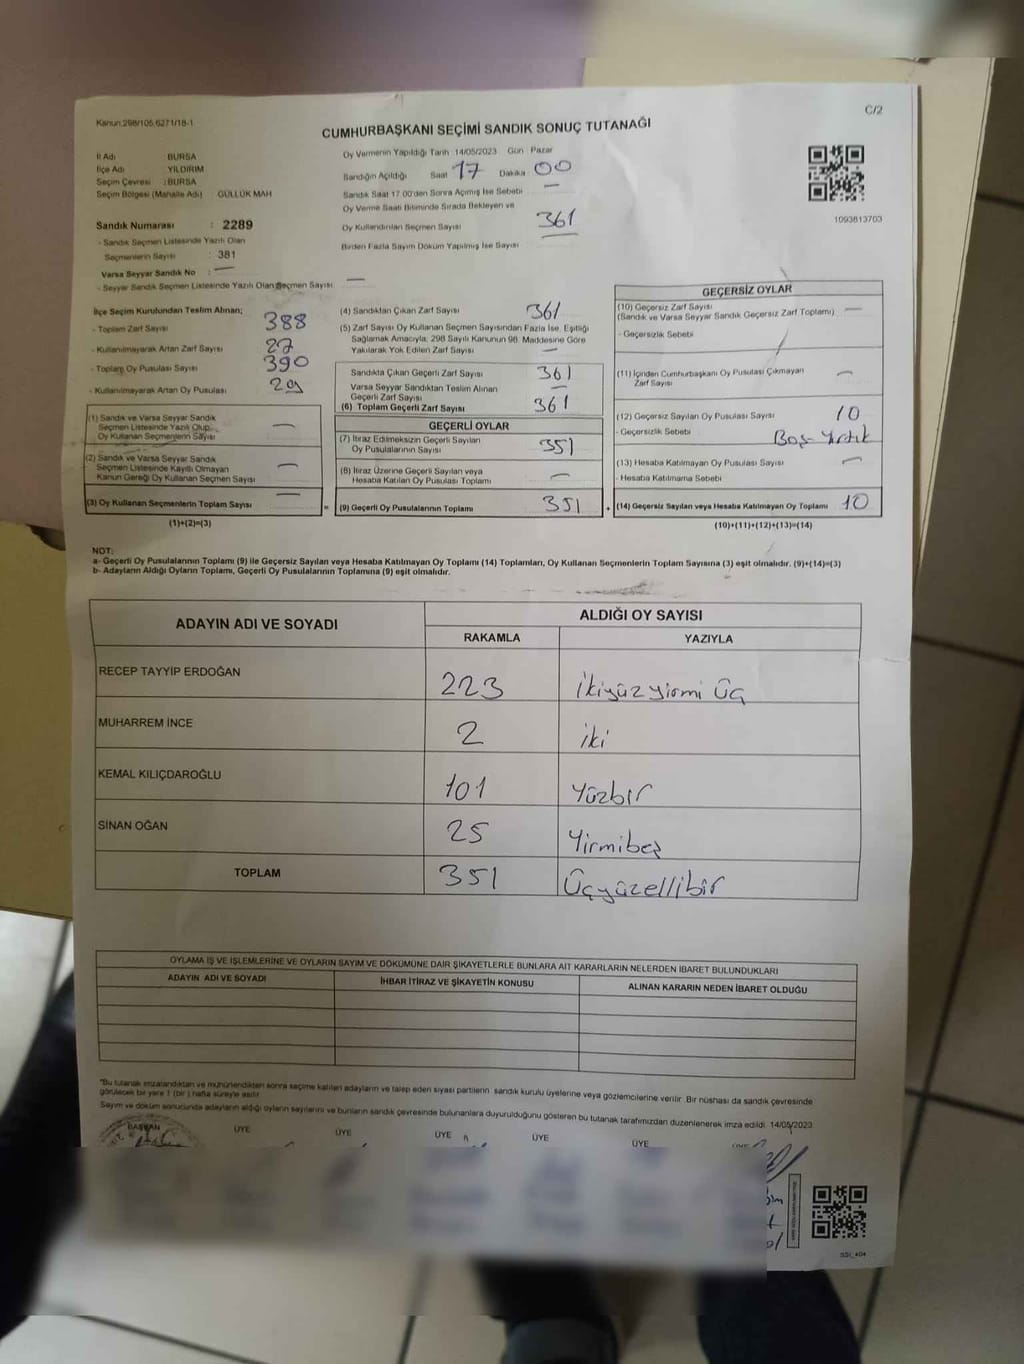 Kanun:298/105,6271/18-1
C/2
CUMHURBAŞKANI SEÇİMİ SANDIK SONUÇ TUTANAĞI
İl Adı : BURSA
İlçe Adı : YILDIRIM
Seçim Çevresi : BURSA
Seçim Bölgesi (Mahalle Adı) GÜLLÜK MAH
Sandık Numarası : 2289
- Sandık Seçmen Listesinde Yazılı Olan
Seçmenlerin Sayısı : 381
Varsa Seyyar Sandık No : —
- Seyyar Sandık Seçmen Listesinde Yazılı Olan Seçmen Sayısı: —
Oy Vermenin Yapıldığı Tarih 14/05/2023 Gün Pazar
Sandığın Açıldığı Saat 17 Dakika 00
Sandık Saat 17.00'den Sonra Açılmış İse Sebebi —
Oy Verme Saati Bitiminde Sırada Bekleyen ve
Oy Kullandırılan Seçmen Sayısı 361
Birden Fazla Sayım Döküm Yapılmış İse Sayısı —
1093813703
İlçe Seçim Kurulundan Teslim Alınan;
- Toplam Zarf Sayısı 388
- Kullanılmayarak Artan Zarf Sayısı 27
- Toplam Oy Pusulası Sayısı 390
- Kullanılmayarak Artan Oy Pusulası 29
(1) Sandık ve Varsa Seyyar Sandık
Seçmen Listesinde Yazılı Olup,
Oy Kullanan Seçmenlerin Sayısı —
(2) Sandık ve Varsa Seyyar Sandık
Seçmen Listesinde Kayıtlı Olmayan
Kanun Gereği Oy Kullanan Seçmen Sayısı —
(3) Oy Kullanan Seçmenlerin Toplam Sayısı —
(1)+(2)=(3)
(4) Sandıktan Çıkan Zarf Sayısı 361
(5) Zarf Sayısı Oy Kullanan Seçmen Sayısından Fazla İse, Eşitliği
Sağlamak Amacıyla, 298 Sayılı Kanunun 98. Maddesine Göre
Yakılarak Yok Edilen Zarf Sayısı —
Sandıkta Çıkan Geçerli Zarf Sayısı 361
Varsa Seyyar Sandıktan Teslim Alınan
Geçerli Zarf Sayısı —
(6) Toplam Geçerli Zarf Sayısı 361
GEÇERLİ OYLAR
(7) İtiraz Edilmeksizin Geçerli Sayılan
Oy Pusulasının Sayısı 351
(8) İtiraz Üzerine Geçerli Sayılan veya
Hesaba Katılan Oy Pusulası Toplamı —
= (9) Geçerli Oy Pusulalarının Toplamı 351 +
GEÇERSİZ OYLAR
(10) Geçersiz Zarf Sayısı
(Sandık ve Varsa Seyyar Sandık Geçersiz Zarf Toplamı) —
- Geçersizlik Sebebi
(11) İçinden Cumhurbaşkanı Oy Pusulası Çıkmayan
Zarf Sayısı —
(12) Geçersiz Sayılan Oy Pusulası Sayısı 10
- Geçersizlik Sebebi Boş-Yırtık
(13) Hesaba Katılmayan Oy Pusulası Sayısı —
- Hesaba Katılmama Sebebi
(14) Geçersiz Sayılan veya Hesaba Katılmayan Oy Toplamı 10
(10)+(11)+(12)+(13)=(14)
NOT:
a- Geçerli Oy Pusulalarının Toplamı (9) ile Geçersiz Sayılan veya Hesaba Katılmayan Oy Toplamı (14) Toplamları, Oy Kullanan Seçmenlerin Toplam Sayısına (3) eşit olmalıdır. (9)+(14)=(3)
b- Adayların Aldığı Oyların Toplamı, Geçerli Oy Pusulalarının Toplamına (9) eşit olmalıdır.
ADAYIN ADI VE SOYADI ALDIĞI OY SAYISI
RAKAMLA YAZIYLA
RECEP TAYYİP ERDOĞAN 223 ikiyüzyirmi üç
MUHARREM İNCE 2 iki
KEMAL KILIÇDAROĞLU 101 yüzbir
SİNAN OĞAN 25 Yirmibeş
TOPLAM 351 üçyüzellibir
OYLAMA İŞ VE İŞLEMLERİNE VE OYLARIN SAYIM VE DÖKÜMÜNE DAİR ŞİKAYETLERLE BUNLARA AİT KARARLARIN NELERDEN İBARET BULUNDUKLARI
ADAYIN ADI VE SOYADI İHBAR İTİRAZ VE ŞİKAYETİN KONUSU ALINAN KARARIN NEDEN İBARET OLDUĞU
*Bu tutanak imzalandıktan ve mühürlendikten sonra seçime katılan adayların ve talep eden siyasi partilerin sandık kurulu üyelerine veya gözlemcilerine verilir. Bir nüshası da sandık çevresinde
görülecek bir yere 1 (bir) hafta süreyle asılır.
Sayım ve döküm sonucunda adayların aldığı oyların sayılarını ve bunların sandık çevresinde bulunanlara duyurulduğunu gösteren bu tutanak tarafımızdan düzenlenerek imza edildi. 14/05/2023
BAŞKAN ÜYE ÜYE ÜYE ÜYE ÜYE ÜYE
SSİ_404